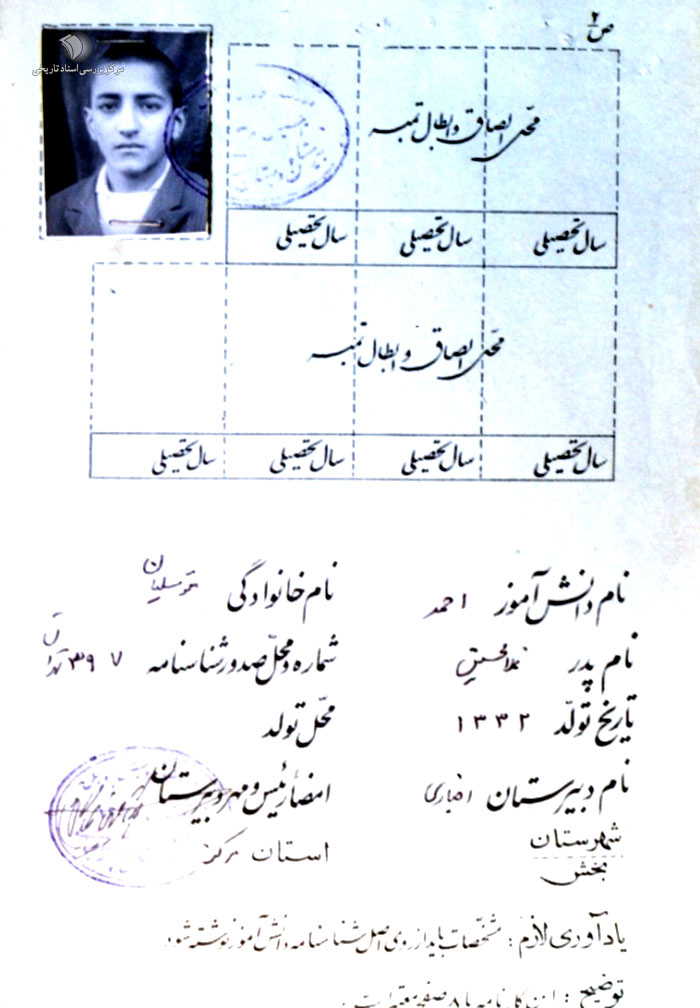 ص ۲
مرکز بررسی اسناد تاریخی
محل الصاق و ابطال تمبر
سال تحصیلی سال تحصیلی سال تحصیلی
محل الصاق و ابطال تمبر
سال تحصیلی سال تحصیلی سال تحصیلی سال تحصیلی
نام دانش آموز احمد نام خانوادگی
نام پدر غلامحسین شماره و محل صدور شناسنامه ۳۹۷ تهران
تاریخ تولد ۱۳۳۲ محل تولد
نام دبیرستان امضاء رئیس و مهر دبیرستان
شهرستان
بخش
استان مرکز
یادآوری لازم: مشخصات باید از روی اصل شناسنامه دانش آموز نوشته شود
توضیح: این کارنامه با ۸ صفحه معتبر است.